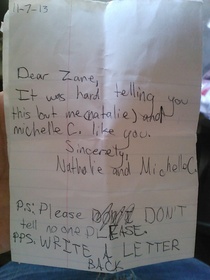 11-7-13
Dear Zane,
It was hard telling you
this but me(natalie) and
michelle C. like you.
Sincerety,
Nathalie and Michelle C.
P.S: Please DON'T
tell no one PLEASE.
P.PS. WRITE A LETTER
BACK